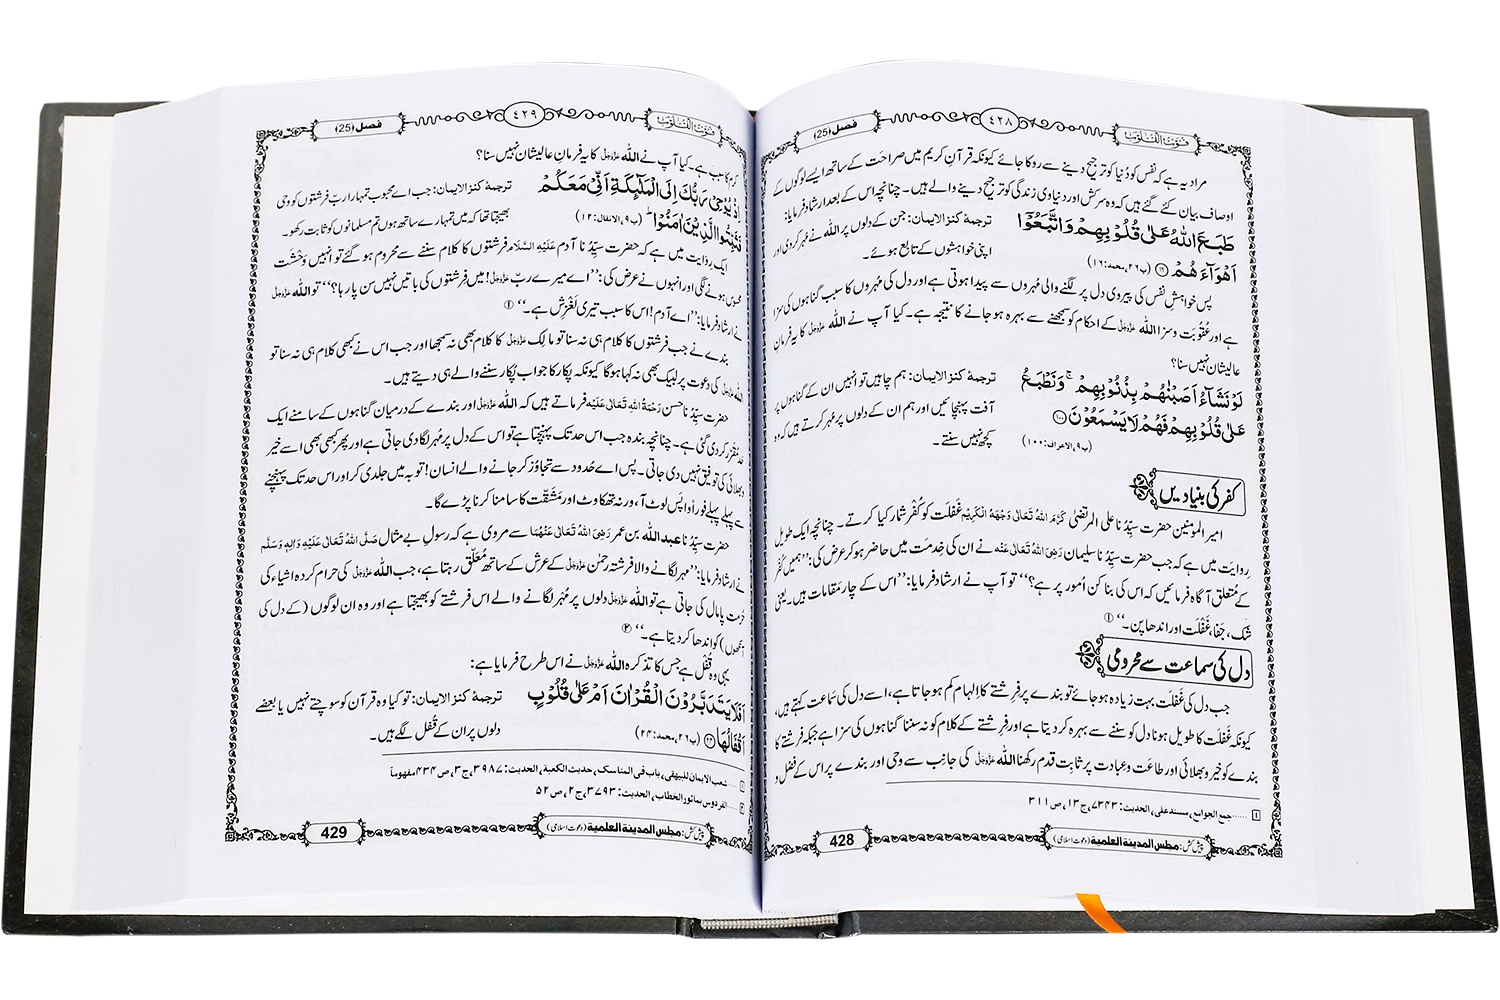 قوت القلوب ٤٢٨ فصل (25)
مراد یہ ہے کہ نفس کو دُنیا کو ترجیح دینے سے روکا جائے کیونکہ قرآنِ کریم میں صراحت کے ساتھ ایسے لوگوں کے
اوصاف بیان کئے گئے ہیں کہ وہ سرکش اور دنیاوی زندگی کو ترجیح دینے والے ہیں۔ چنانچہ اس کے بعد ارشاد فرمایا:
طَبَعَ اللّٰهُ عَلٰى قُلُوْبِهِمْ وَاتَّبَعُوْۤا ترجمۂ کنز الایمان: جن کے دلوں پر اللہ نے مہر کر دی اور
اَهْوَآءَهُمْ ⑯ (پ۲۶، محمد:۱۶) اپنی خواہشوں کے تابع ہوئے۔
پس خواہشِ نفس کی پیروی دل پر لگنے والی مُہروں سے پیدا ہوتی ہے اور دل کی مُہروں کا سبب گناہوں کی سزا
ہے اور عُقُوبَت و سزا اللہ عَزَّوَجَلَّ کے احکام کو سمجھنے سے بہرہ ہو جانے کا نتیجہ ہے۔ کیا آپ نے اللہ عَزَّوَجَلَّ کا یہ فرمانِ
عالیشان نہیں سنا؟
لَوْ نَشَآءُ اَصَبْنٰهُمْ بِذُنُوْبِهِمْ ۚ وَ نَطْبَعُ ترجمۂ کنز الایمان: ہم چاہیں تو انہیں ان کے گناہوں پر
عَلٰى قُلُوْبِهِمْ فَهُمْ لَا يَسْمَعُوْنَ ⑩⓪ آفت پہنچائیں اور ہم ان کے دلوں پر مُہر کرتے ہیں کہ وہ
(پ۹، الاعراف:۱۰۰) کچھ نہیں سنتے۔
کفر کی بنیادیں
امیر المومنین حضرت سیِّدُنا علی المرتضیٰ كَرَّمَ اللهُ تَعَالٰى وَجْهَهُ الْكَرِيْم غَفْلَت کو کُفْر شمار کیا کرتے۔ چنانچہ ایک طویل
رِوایَت میں ہے کہ جب حضرت سیِّدُنا سلیمان رَضِيَ اللهُ تَعَالٰى عَنْه نے ان کی خِدمَت میں حاضر ہو کر عرض کی: ’’ہمیں کُفر
کے مُتعلق آگاہ فرمائیں کہ اس کی بنا کن اُمور پر ہے؟‘‘ تو آپ نے ارشاد فرمایا: ’’اس کے چار مقامات ہیں۔ یعنی
شک، جَفا، غَفْلَت اور اندھا پن۔‘‘ ①
دل کی سماعت سے محرومی
جب دل کی غَفْلَت بہت زیادہ ہو جائے تو بندے پر فِرِشتے کا اِلہام کم ہو جاتا ہے، اسے دل کی سَماعَت کہتے ہیں،
کیونکہ غَفْلَت کا طویل ہونا دل کو سننے سے بہرہ کر دیتا ہے اور فِرِشتے کے کلام کو نہ سننا گناہوں کی سزا ہے جبکہ فرشتے کا
بندے کو خیر و بھلائی اور طاعَت و عِبادت پر ثابِت قدم رکھنا اللہ عَزَّوَجَلَّ کی جانِب سے وحی اور بندے پر اس کے فضل و
①......جمع الجوامع، مسند علی، الحدیث:۷۳۴۳، ج۱۳، ص۳۱۱
پیش کش: مجلس المدینۃ العلمیۃ (دعوتِ اسلامی) 428
قوت القلوب ٤٢٩ فصل (25)
کرم کا سبب ہے۔ کیا آپ نے اللہ عَزَّوَجَلَّ کا یہ فرمانِ عالیشان نہیں سنا؟
اِذْ يُوْحِيْ رَبُّكَ اِلَى الْمَلٰٓىِٕكَةِ اَنِّيْ مَعَكُمْ ترجمۂ کنز الایمان: جب اے محبوب تمہارا رب فرشتوں کو وحی
فَثَبِّتُوا الَّذِيْنَ اٰمَنُوْا ؕ (پ۹، الانفال:۱۲) بھیجتا تھا کہ میں تمہارے ساتھ ہوں تم مسلمانوں کو ثابت رکھو۔
ایک رِوایَت میں ہے کہ حضرت سیِّدُنا آدم عَلَيْهِ السَّلَام فرشتوں کا کلام سننے سے محروم ہو گئے تو انہیں وَحْشَت
محسوس ہونے لگی اور انہوں نے عرض کی: ’’اے میرے ربّ عَزَّوَجَلَّ! میں فرشتوں کی باتیں نہیں سن پا رہا؟‘‘ تو اللہ عَزَّوَجَلَّ
نے ارشاد فرمایا: ’’اے آدم! اس کا سبب تیری لَغْزِش ہے۔‘‘ ①
بندے نے جب فرشتوں کا کلام ہی نہ سنا تو مالِک عَزَّوَجَلَّ کا کلام بھی نہ سمجھا اور جب اس نے کبھی کلام ہی نہ سنا تو
اللہ عَزَّوَجَلَّ کی دعوت پر لبیک بھی نہ کہا ہوگا کیونکہ پُکار کا جواب پُکار سننے والے ہی دیتے ہیں۔
حضرت سیِّدُنا حسن رَحْمَةُ اللهِ تَعَالٰى عَلَيْه فرماتے ہیں کہ اللہ عَزَّوَجَلَّ اور بندے کے درمیان گناہوں کے سامنے ایک
حد مقرَّر کر دی گئی ہے۔ چنانچہ بندہ جب اس حد تک پہنچتا ہے تو اس کے دل پر مُہر لگا دی جاتی ہے اور پھر کبھی بھی اسے خیر
و بھلائی کی توفیق نہیں دی جاتی۔ پس اے حُدود سے تجاوُز کر جانے والے انسان! توبہ میں جلدی کر اور اس حد تک پہنچنے
سے پہلے پہلے فوراً واپس لوٹ آ، ورنہ تھکاوٹ اور مَشَقَّت کا سامنا کرنا پڑے گا۔
حضرت سیِّدُنا عبد اللہ بن عمر رَضِيَ اللهُ تَعَالٰى عَنْهُمَا سے مروی ہے کہ رسولِ بے مثال صَلَّى اللهُ تَعَالٰى عَلَيْهِ وَاٰلِهٖ وَسَلَّم
نے ارشاد فرمایا: ’’مہر لگانے والا فرشتہ رحمٰن عَزَّوَجَلَّ کے عرش کے ساتھ مُعَلَّق رہتا ہے، جب اللہ عَزَّوَجَلَّ کی حرام کردہ اشیاء کی
حُرمت پامال کی جاتی ہے تو اللہ عَزَّوَجَلَّ دلوں پر مُہر لگانے والے اس فرشتے کو بھیجتا ہے اور وہ ان لوگوں (کے دل کی
آنکھوں) کو اندھا کر دیتا ہے۔‘‘ ②
یہی وہ قُفْل ہے جس کا تذکرہ اللہ عَزَّوَجَلَّ نے اس طرح فرمایا ہے:
اَفَلَا يَتَدَبَّرُوْنَ الْقُرْاٰنَ اَمْ عَلٰى قُلُوْبٍ ترجمۂ کنز الایمان: تو کیا وہ قرآن کو سوچتے نہیں یا بعضے
اَقْفَالُهَا ㉔ (پ۲۶، محمد:۲۴) دلوں پر ان کے قفل لگے ہیں۔
①......شعب الایمان للبیھقی، باب فی المناسک، حدیث الکعبۃ، الحدیث:۳۹۸۷، ج۳، ص۴۳۴ مفھوماً
②......الفردوس بماثور الخطاب، الحدیث:۳۷۹۳، ج۲، ص۵۲
پیش کش: مجلس المدینۃ العلمیۃ (دعوتِ اسلامی) 429